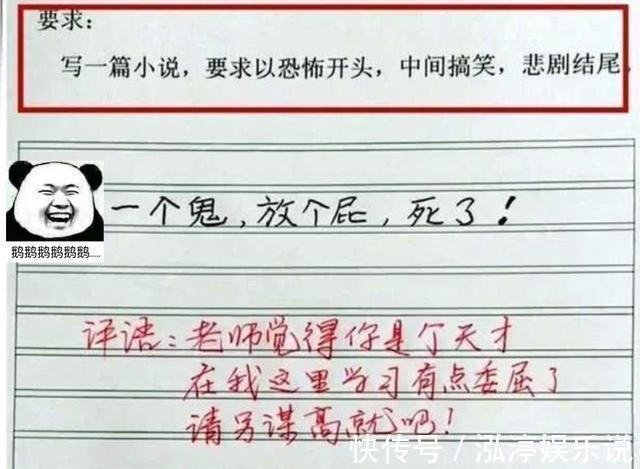 要求：
写一篇小说，要求以恐怖开头，中间搞笑，悲剧结尾。
一个鬼，放个屁，死了！
鹅鹅鹅鹅鹅鹅……
评语：老师觉得你是个天才
在我这里学习有点委屈了
请另谋高就吧！
快传号／泓渟娱乐说